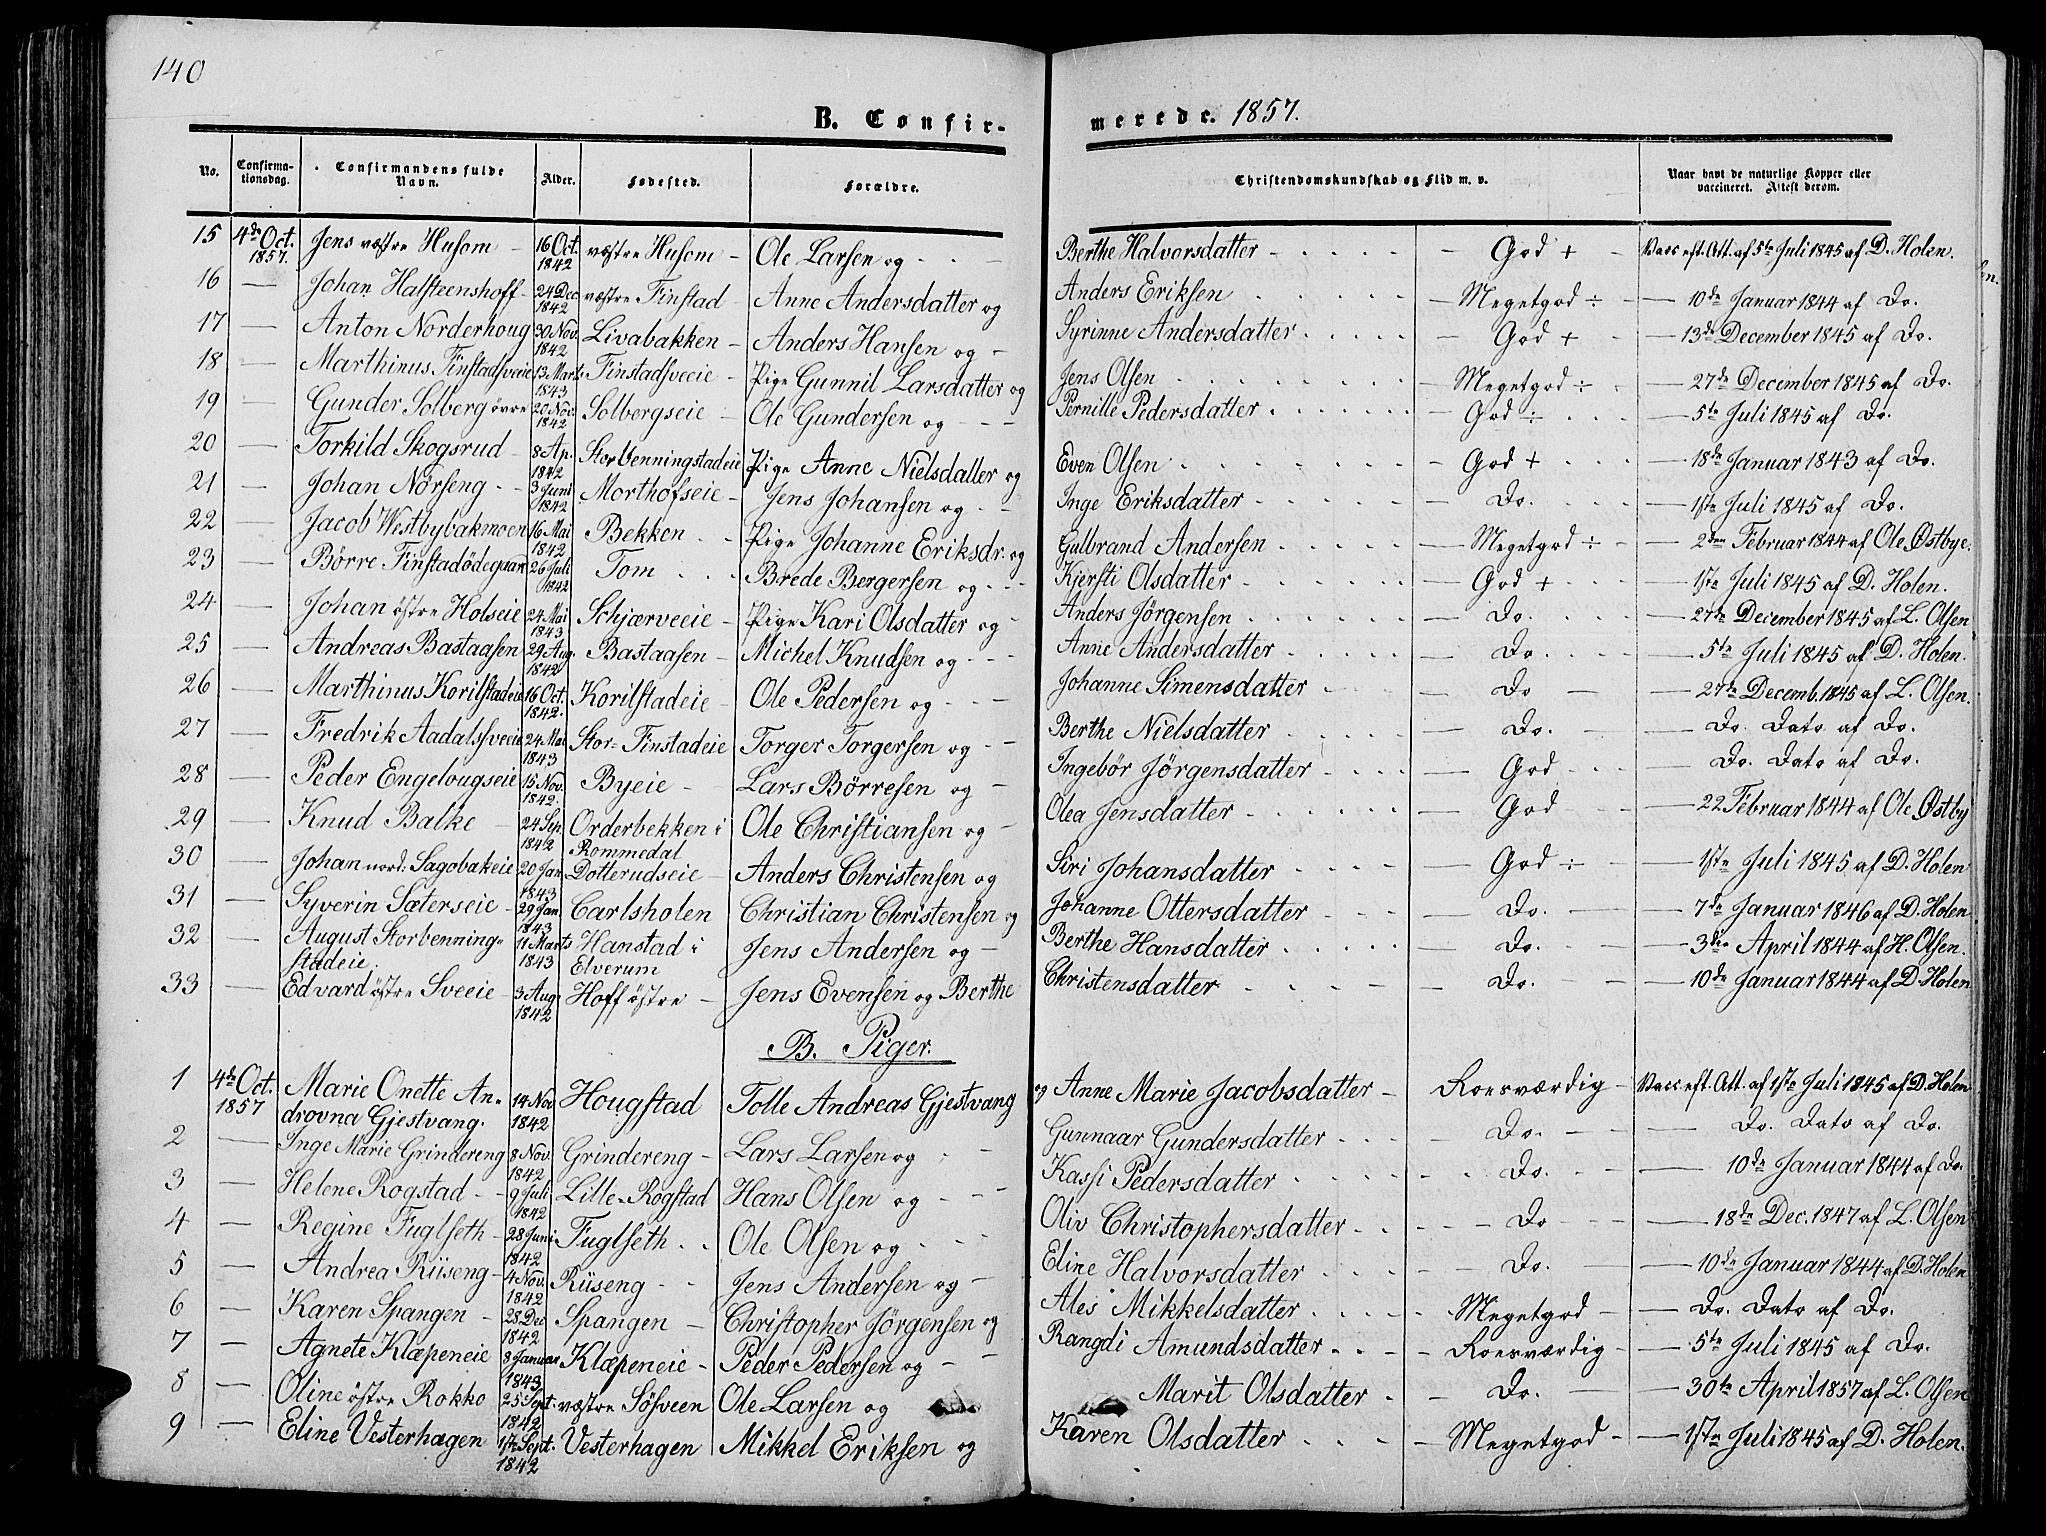 140
B. Confirmerede. 1857.
No. Confirmationsdag. Confirmandens fulde Navn. Alder. Fødested. Forældre. Christendomskundskab og Flid m. v. Naar havt de naturlige Kopper eller vaccineret. Attest derom.
15 4de Oct. 1857. Jens vestre Husom – 16 Oct. 1842 vestre Husom – Ole Larsen og Berthe Halvorsdatter – God + – Vacc. eft. Att. af 5te Juli 1845 af D. Holen.
16 — Johan Halsteenshoff – 24 Dec 1842 vestre Finstad – Anne Andersdatter og Anders Eriksen – Megetgod ÷ – 10de Januar 1844 af Do.
17 — Anton Norderhoug 30 Nov. 1842 Livabakken – Anders Hansen og Syrinne Andersdatter – God + – 13de December 1845 af Do.
18 — Marthinus Finstadsveeie 13 Marts 1843 Finstadsveeie – Pige Gunnil Larsdatter og Jens Olsen – Megetgod ÷ – 27de December 1845 af Do.
19 — Gunder Solberg øvre 20 Nov. 1842 Solbergseie – Ole Gundersen og Pernille Pedersdatter – God ÷ – 5te Juli 1845 af Do.
20 — Torkild Skogsrud – 8 Ap. 1842 Storbenningstadeie Pige Anne Nielsdatter og Even Olsen – God + – 18de Januar 1843 af Do.
21 — Johan Nørseng – 3 Juni 1842 Morthofseie – Jens Johansen og Inge Eriksdatter – Do. – 1ste Juli 1845 af Do.
22 — Jacob Westbybakmoen 16 Mai 1842 Bekken – Pige Johanne Eriksdr. og Gulbrand Andersen – Megetgod ÷ – 2den Februar 1844 af Ole Østbye.
23 — Børre Finstadødegaard 26 Juli 1842 Tom – Brede Bergersen og Kjersti Olsdatter – God + – 1ste Juli 1845 af D. Holen.
24 — Johan østre Holseie 24 Mai 1843 Schjærveeie – Pige Kari Olsdatter og Anders Jørgensen – Do. – 27de December 1845 af L. Olsen
25 — Andreas Bastaasen 29 Aug. 1842 Bastaasen – Michel Knudsen og Anne Andersdatter – Do. – 5te Juli 1845 af D. Holen.
26 — Marthinus Korilstadeie 16 Oct. 1842. Korilstadeie – Ole Pedersen og Johanne Simensdatter – Do – 27de Decemb. 1845 af L. Olsen.
27 — Fredrik Aadalssveeie 24 Mai 1843 Stor=Finstadeie Torger Torgersen og Berthe Nielsdatter – Do. – Do. Dato af Do.
28 — Peder Engelougseie 15 Nov. 1842. Byeie – Lars Børresen og Ingebør Jørgensdatter – God – Do. Dato af Do.
29 — Knud Balke – 24 Sep. 1842 Orderbekken i Rommedal Ole Christiansen og Olea Jensdatter – God – 22 Februar 1844 af Ole Østby
30 — Johan nord: Sagobakeie 20 Jan 1843 Dotterudseie – Anders Christensen og Siri Johansdatter – God ÷ – 1ste Juli 1845 af D. Holen
31 — Syverin Sæterseie – 29 Jan. 1843 Carlsholen Christian Christensen og Johanne Ottersdatter – Do. – 7de Januar 1846 af D. Holen
32 — August Storbenningstadeie. 11 Marts 1843 Hanstad i Elverum Jens Andersen og Berthe Hansdatter – Do. – 3die April 1844 af H. Olsen.
33 — Edvard østre Sveeie – 3 Aug 1842 Hoff østre – Jens Evensen og Berthe Christensdatter – Do. – 10de Januar 1844 af D. Holen
B. Piger.
1 4de Oct. 1857 Marie Onette Androvna Gjestvang. 14 Nov 1842 Hougstad Tolle Andreas Gjestvang og Anne Marie Jacobsdatter – Roesværdig – Vacc eft. Att. af 1ste Juli 1845 af D. Holen
2 — Inge Marie Grindereng 8 Nov. 1842 Grindereng – Lars Larsen og Gunnaar Gundersdatter – Do. – Do. Dato af Do.
3 — Helene Rogstad – 9 Juli 1842 Lille-Rogstad Hans Olsen og Kassi Pedersdatter – Do. – 10de Januar 1844 af Do.
4 — Regine Fuglseth – 28 Juni 1842 Fuglseth – Ole Olsen og Oliv Christophersdatter – Do – 18de Dec. 1847 af L. Olsen
5 — Andrea Riiseng – 4 Nov. 1842 Riiseng – Jens Andersen og Eline Halvorsdatter – Do. – 10de Januar 1844 af D. Holen
6 — Karen Spangen – 28 Dec 1842 Spangen – Christopher Jørgensen og Ales Mikkelsdatter – Megetgod – Do. Dato af Do.
7 — Agnete Klæpeneie 8 Januar 1843 Klæpeneie – Peder Pedersen og Rangdi Amundsdatter – Roesværdig – 5te Juli 1845 af Do.
8 — Oline østre Rokko 25 Sept. 1842 vestre Søsveen Ole Larsen og Marit Olsdatter – Do. – 30te April 1857 af L. Olsen
9 — Eline Vesterhagen 17 Sept. 1842 Vesterhagen Mikkel Eriksen og Karen Olsdatter – Megetgod – 1ste Juli 1845 af D. Holen.